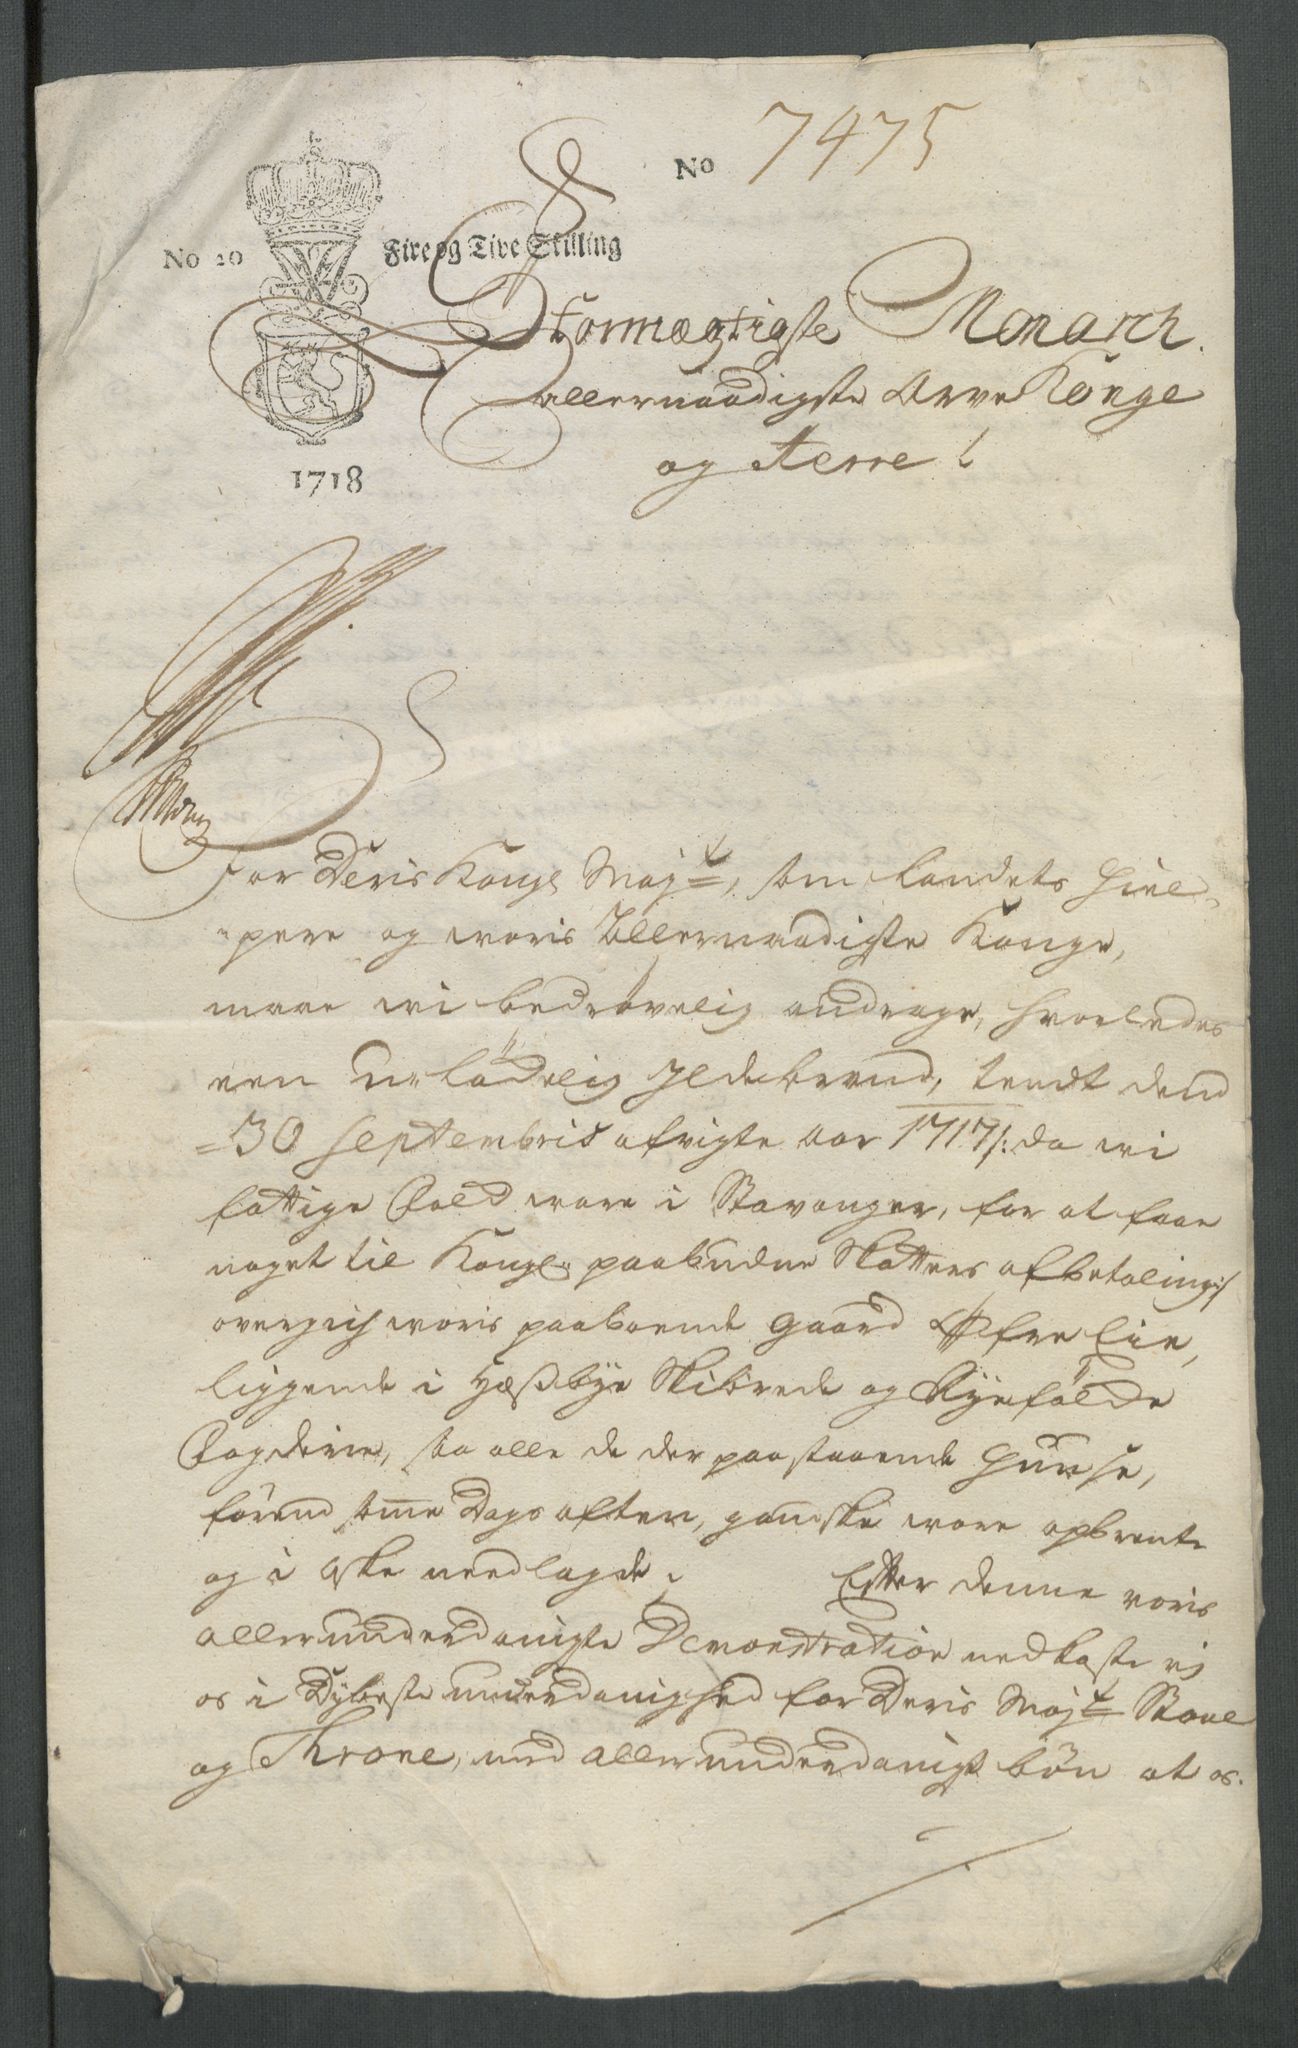 No 7475
No 20 Fire og Tive Skilling
Stormægtigste Monarch.
allernaadigste Arve Konge
og Herre!
1718
For Deris Kongl Maytt, som landets Hiel-
pere og woris Allernaadigste Konge,
maae wi bedrøvelig andrage, hvorledes
een u-lÿdelig Jldebrand, tendt dend
30 Septembris afvigte Aar 1717 /: da wi
fattige Folk ware i Stavanger, for at faae
noget til Kongl. paabudne Skatters afbetaling :/
overgich woris paaboende gaard Efre Eie,
liggende i Hæsbÿe Skibrede og Rÿefÿlcke
Fogderie, saa alle de der paastaaende Huuse,
førend same Dags aften, gandske ware opbrente
og i Aske needlagde; Efter denne voris
allerunderdanigste Demonstration nedkaste vj
os i Dÿbeste underdanighed for Deris Maytt Stoel
og Throne, med allerunderdanigst bøn at os.